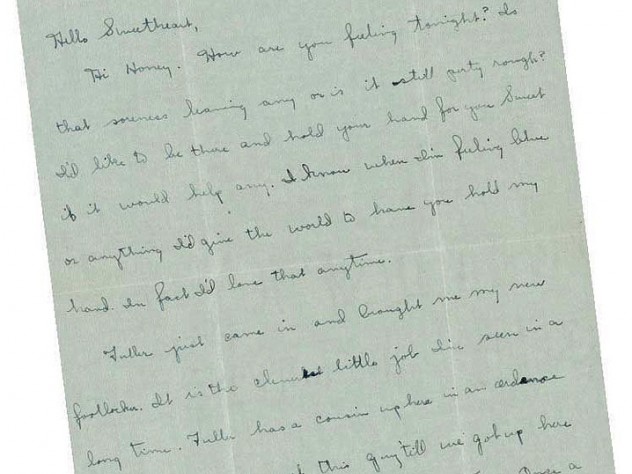 Hello Sweetheart,
Hi Honey. How are you feeling tonight? Is
that soreness leaving any or is it still perty rough?
I'd like to be there and hold your hand for you Sweet
if it would help any. I know when I'm feeling blue
or anything I'd give the world to have you hold my
hand. In fact I'd love that anytime.
Fuller just came in and brought me my new
footlocker. It is the cleverest little job I've seen in a
long time. Fuller has a cousin up here in an ordnance
this guy till we got up here
Once a